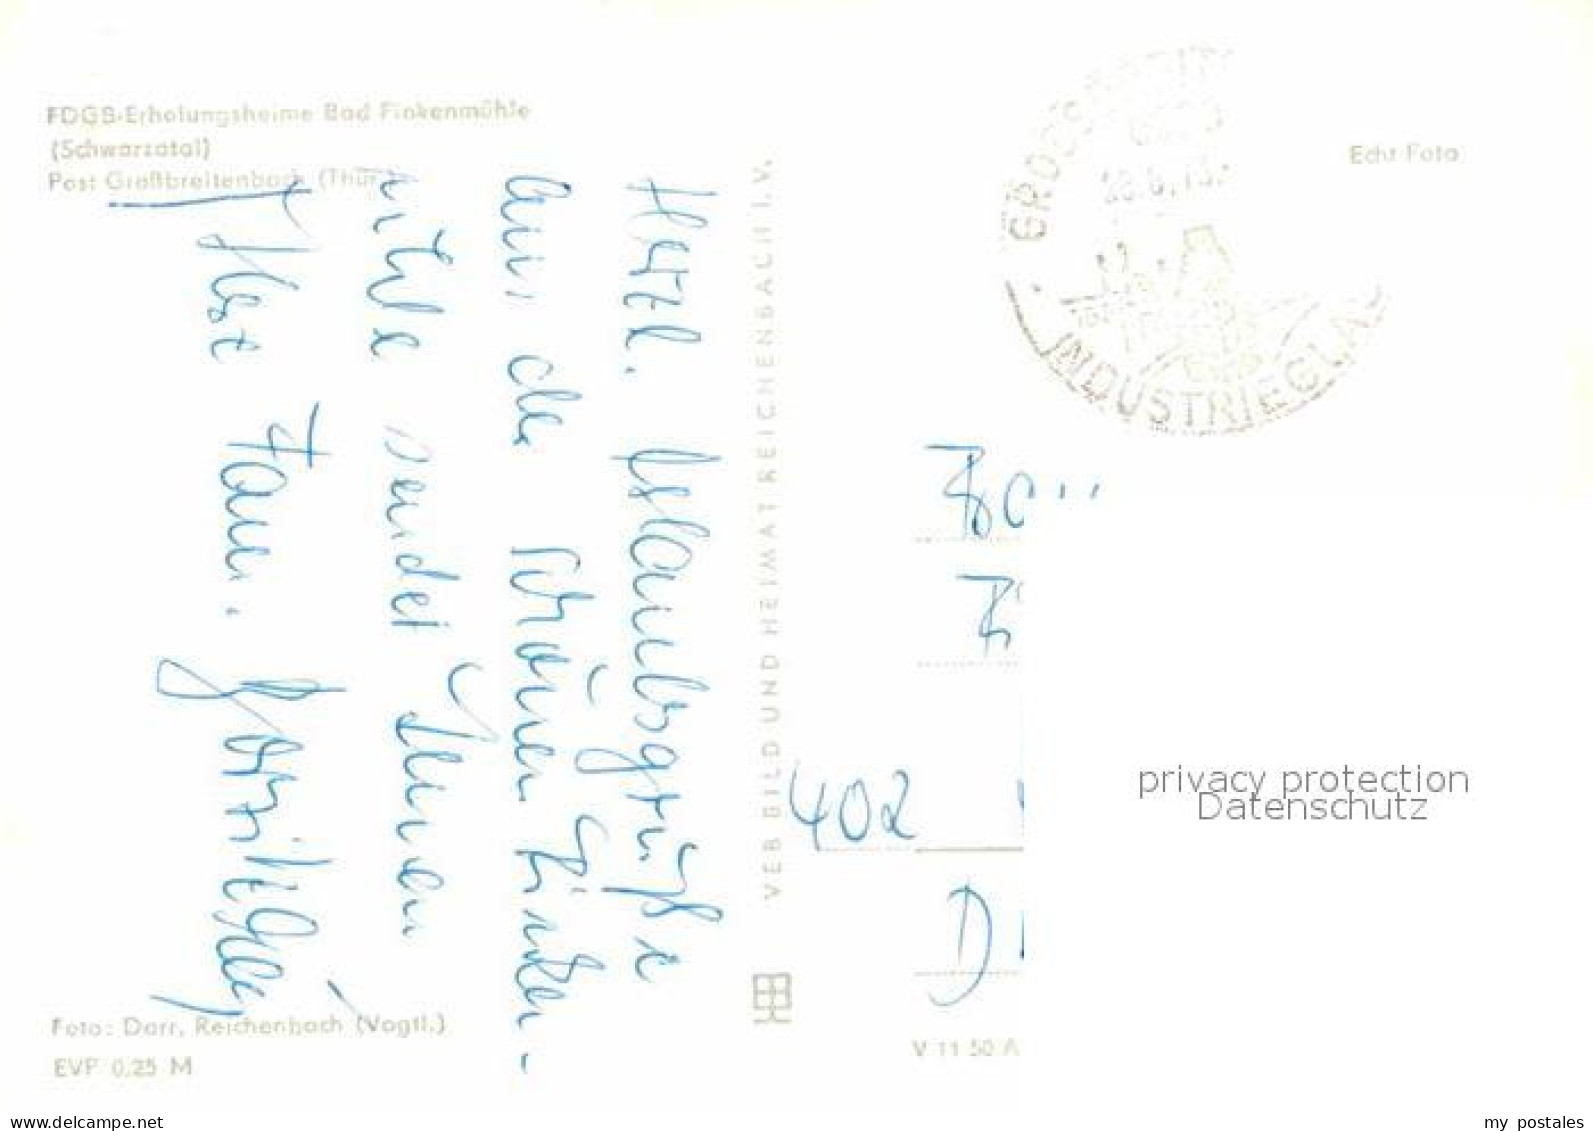 FDGB-Erholungsheime Bad Finkenmühle
(Schwarzatal)
Post Großbreitenbach (Thür.)
Herzl. Urlaubsgrüße
aus der schönen Finken-
mühle sendet Ihnen
Fam.
VEB BILD UND HEIMAT REICHENBACH I.V.
Echt Foto
INDUSTRIEGLA
402
D
privacy protection
Datenschutz
Foto: Darr, Reichenbach (Vogtl.)
EVP 0,25 M
V 11 50 A
www.delcampe.net
my_postales